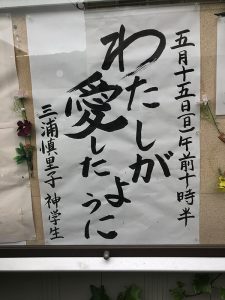 五月十五日(日)午前十時半
わたしが
愛したように
三浦慎里子 神学生